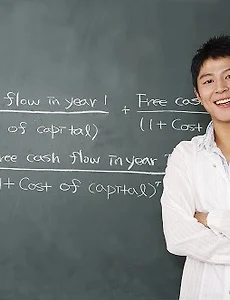 flow in year 1 + Free cas
of capital) (1 + Cost
ree cash flow in year
1 + Cost of capital)